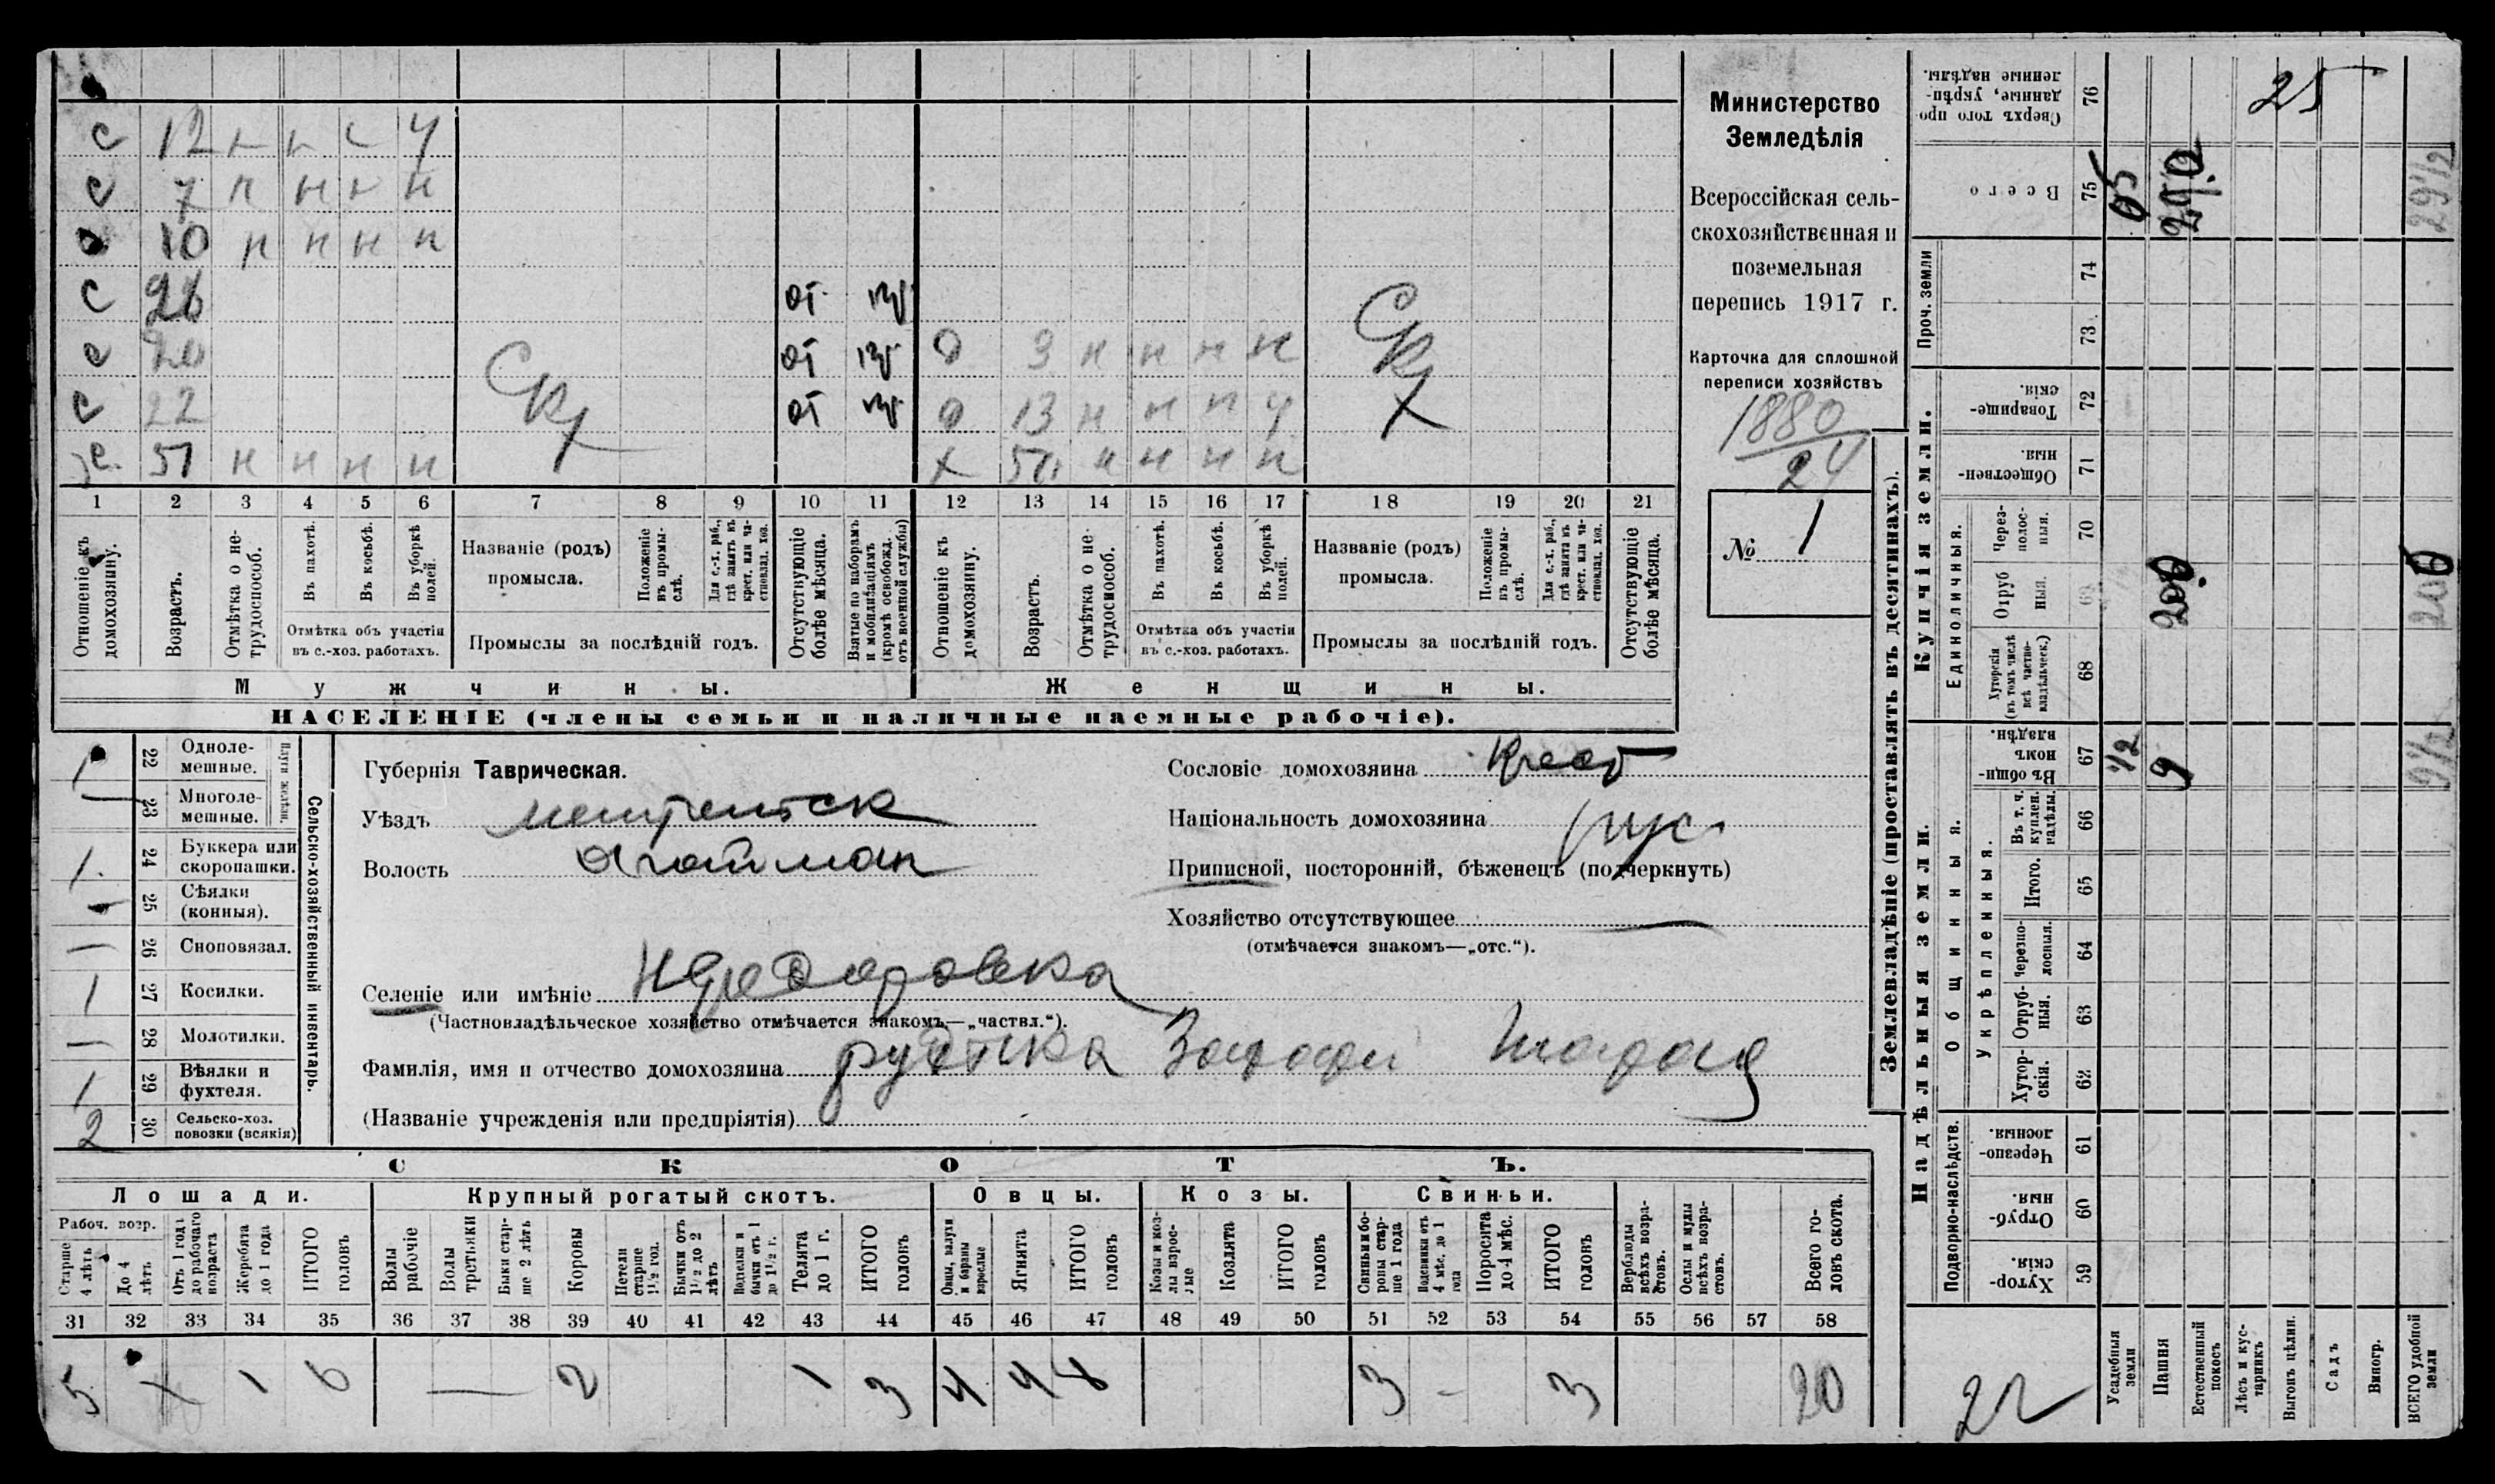 с 12 н н с у
с 7 н н н н
10 н н н н
с 26 от
с 20 от 9 н н н н
с 22 от 13 н н н у
51 н н н н х 50 н н н н
1 2 3 4 5 6 7 8 9 10 11 12 13 14 15 16 17 18 19 20 21
Отношеніе къ домохозяину.
Возрастъ.
Отмѣтка о не-трудоспособ.
Въ пахотѣ.
Въ косьбѣ.
Въ уборкѣ полей.
Отмѣтка объ участіи въ с.-хоз. работахъ.
Названіе (родъ) промысла.
Положеніе въ промы-слѣ.
Для с.-х. раб., гдѣ занятъ въ крест. или ча-стновлад. хоз.
Промыслы за послѣдній годъ.
Отсутствующіе болѣе мѣсяца.
Взятые по наборамъ и мобилизаціямъ (кромѣ освобожд. отъ военной службы)
Отношеніе къ домохозяину.
Возрастъ.
Отмѣтка о не-трудоспособ.
Въ пахотѣ.
Въ косьбѣ.
Въ уборкѣ полей.
Отмѣтка объ участіи въ с.-хоз. работахъ.
Названіе (родъ) промысла.
Положеніе въ промы-слѣ.
Для с.-х. раб., гдѣ занята въ крест. или ча-стновлад. хоз.
Промыслы за послѣдній годъ.
Отсутствующіе болѣе мѣсяца.
Мужчины.
Женщины.
НАСЕЛЕНІЕ (члены семьи и наличные наемные рабочіе).
Министерство
Земледѣлія
Всероссійская сель-
скохозяйственная и
поземельная
перепись 1917 г.
Карточка для сплошной
переписи хозяйствъ
1880
24
№ 1
1 22 Одноле-мешные.
— 23 Многоле-мешные.
Плуги желѣзн.
1. 24 Буккера или скоропашки.
25 Сѣялки (конныя).
— 26 Сноповязал.
1 27 Косилки.
— 28 Молотилки.
1 29 Вѣялки и фухтеля.
2 30 Сельско-хоз. повозки (всякія)
Сельско-хозяйственный инвентарь.
Губернія Таврическая.
Уѣздъ
Волость
Сословіе домохозяина Крест
Національность домохозяина рус
Приписной, посторонній, бѣженецъ (подчеркнуть)
Хозяйство отсутствующее —
(отмѣчается знакомъ—„отс.“).
Селеніе или имѣніе
(Частновладѣльческое хозяйство отмѣчается знакомъ—„частвл.“).
Фамилія, имя и отчество домохозяина
(Названіе учрежденія или предпріятія)
СКОТЪ.
Лошади. Крупный рогатый скотъ. Овцы. Козы. Свиньи.
Рабоч. возр.
Старше 4 лѣтъ
До 4 лѣтъ
Отъ 1 года до рабочаго возраста
Жеребята до 1 года
ИТОГО головъ
Волы рабочіе
Волы третьяки
Быки стар-ше 2 лѣтъ
Коровы
Нетели старше 1½ год.
Бычки отъ 1½ до 2 лѣтъ
Подтелки и бычки отъ 1 до 1½ г.
Телята до 1 г.
ИТОГО головъ
Овцы, валухи и бараны взрослые
Ягнята
ИТОГО головъ
Козы и коз-лы взрос-лые
Козлята
ИТОГО головъ
Свиньи и бо-ровы стар-ше 1 года
Подсвинки отъ 4 мѣс. до 1 года
Поросята до 4 мѣс.
ИТОГО головъ
Верблюды всѣхъ возра-стовъ.
Ослы и мулы всѣхъ возра-стовъ.
Всего го-ловъ скота.
31 32 33 34 35 36 37 38 39 40 41 42 43 44 45 46 47 48 49 50 51 52 53 54 55 56 57 58
5 1 6 — 2 1 3 4 4 8 3 - 3 20
Землевладѣніе (проставлять въ десятинахъ).
Надѣльныя земли. Купчія земли. Проч. земли
Подворно-наслѣдств. Общинныя. Укрѣпленныя. Единоличныя.
Хутор-скія. 59
Отруб-ныя. 60
Черезпо-лосныя. 61
Хутор-скія. 62
Отруб-ныя. 63
Черезпо-лосныя. 64
Итого. 65
Въ т. ч. куплен. надѣлы. 66
Въ общин-номъ владѣн. 67
Хуторскія (въ томъ числѣ всѣ частно-владѣльческ.) 68
Отруб ныя. 69
Через-полос-ныя. 70
Обществен-ныя. 71
Товарище-скія. 72
73
74
Всего 75
Сверхъ того про-данные, укрѣп-ленные надѣлы. 76
22
Усадебныя земли ½ 05
Пашня 9
Естественный покосъ
Лѣсъ и кус-тарникъ
Выгонъ цѣлин. 25
Садъ
Виногр.
ВСЕГО удобной земли 9½ 20 29½